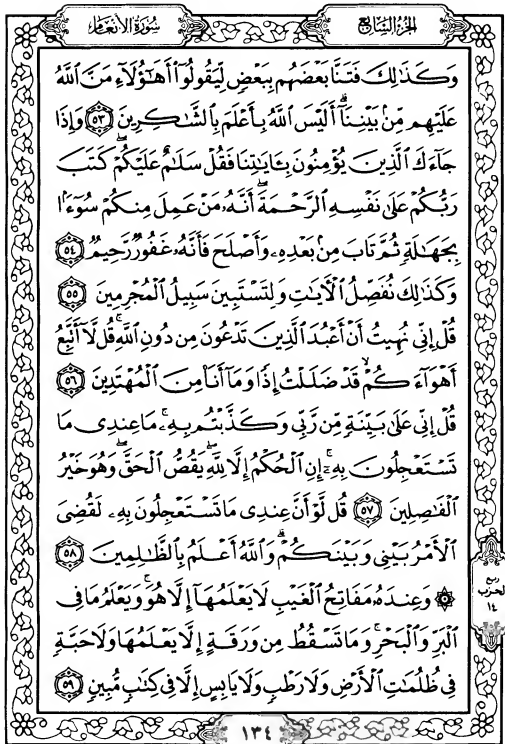 سُورَةُ الأَنعَامِ
الجُزءُ السَّابِعُ
وَكَذَٰلِكَ فَتَنَّا بَعْضَهُم بِبَعْضٍ لِّيَقُولُوٓا۟ أَهَٰٓؤُلَآءِ مَنَّ ٱللَّهُ
عَلَيْهِم مِّنۢ بَيْنِنَآ ۗ أَلَيْسَ ٱللَّهُ بِأَعْلَمَ بِٱلشَّٰكِرِينَ ٥٣ وَإِذَا
جَآءَكَ ٱلَّذِينَ يُؤْمِنُونَ بِـَٔايَٰتِنَا فَقُلْ سَلَٰمٌ عَلَيْكُمْ ۖ كَتَبَ
رَبُّكُمْ عَلَىٰ نَفْسِهِ ٱلرَّحْمَةَ ۖ أَنَّهُۥ مَنْ عَمِلَ مِنكُمْ سُوٓءًۢا
بِجَهَٰلَةٍ ثُمَّ تَابَ مِنۢ بَعْدِهِۦ وَأَصْلَحَ فَأَنَّهُۥ غَفُورٌ رَّحِيمٌ ٥٤
وَكَذَٰلِكَ نُفَصِّلُ ٱلْـَٔايَٰتِ وَلِتَسْتَبِينَ سَبِيلُ ٱلْمُجْرِمِينَ ٥٥
قُلْ إِنِّى نُهِيتُ أَنْ أَعْبُدَ ٱلَّذِينَ تَدْعُونَ مِن دُونِ ٱللَّهِ ۚ قُل لَّآ أَتَّبِعُ
أَهْوَآءَكُمْ ۙ قَدْ ضَلَلْتُ إِذًا وَمَآ أَنَا۠ مِنَ ٱلْمُهْتَدِينَ ٥٦
قُلْ إِنِّى عَلَىٰ بَيِّنَةٍ مِّن رَّبِّى وَكَذَّبْتُم بِهِۦ ۚ مَا عِندِى مَا
تَسْتَعْجِلُونَ بِهِۦٓ ۚ إِنِ ٱلْحُكْمُ إِلَّا لِلَّهِ ۖ يَقُصُّ ٱلْحَقَّ ۖ وَهُوَ خَيْرُ
ٱلْفَٰصِلِينَ ٥٧ قُل لَّوْ أَنَّ عِندِى مَا تَسْتَعْجِلُونَ بِهِۦ لَقُضِىَ
ٱلْأَمْرُ بَيْنِى وَبَيْنَكُمْ ۗ وَٱللَّهُ أَعْلَمُ بِٱلظَّٰلِمِينَ ٥٨
۞ وَعِندَهُۥ مَفَاتِحُ ٱلْغَيْبِ لَا يَعْلَمُهَآ إِلَّا هُوَ ۚ وَيَعْلَمُ مَا فِى
ٱلْبَرِّ وَٱلْبَحْرِ ۚ وَمَا تَسْقُطُ مِن وَرَقَةٍ إِلَّا يَعْلَمُهَا وَلَا حَبَّةٍ
فِى ظُلُمَٰتِ ٱلْأَرْضِ وَلَا رَطْبٍ وَلَا يَابِسٍ إِلَّا فِى كِتَٰبٍ مُّبِينٍ ٥٩
ربع
الحزب
١٤
١٣٤